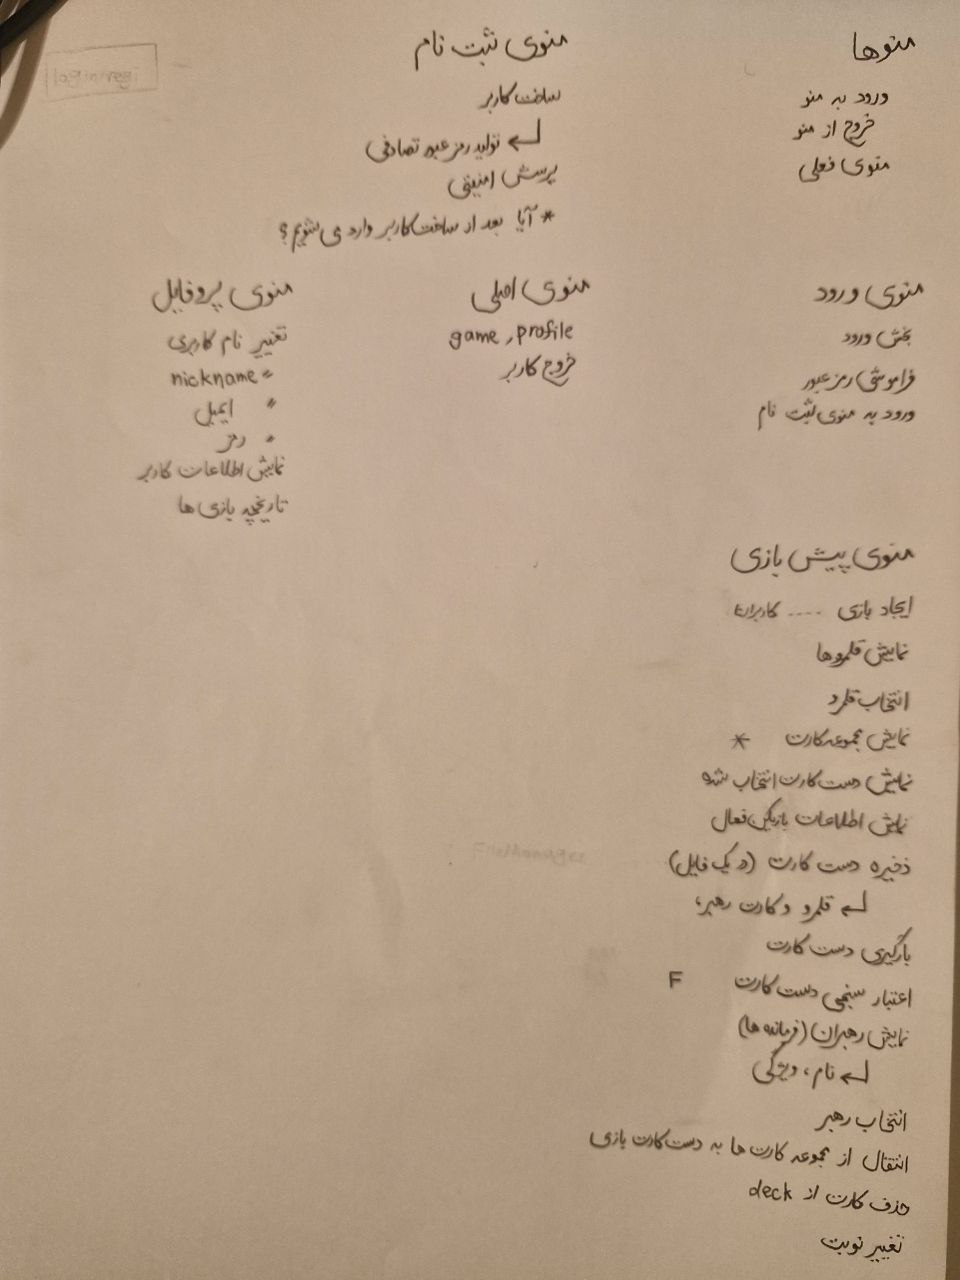 منوها
ورود به منو
خروج از منو
منوی فعلی
منوی ثبت نام
ساخت کاربر
↲ تولید رمز عبور تصادفی
پرسش امنیتی
* آیا بعد از ساخت کاربر وارد می شویم؟
منوی ورود
بخش ورود
فراموشی رمز عبور
ورود به منوی ثبت نام
منوی اصلی
game, profile
خروج کاربر
منوی پروفایل
تغییر نام کاربری
" nickname
" ایمیل
" رمز
نمایش اطلاعات کاربر
تاریخچه بازی ها
منوی پیش بازی
ایجاد بازی ....
نمایش قلمروها
انتخاب قلمرو
نمایش مجموعه کارت *
نمایش دست کارت انتخاب شده
نمایش اطلاعات بازیکن فعال
ذخیره دست کارت (در یک فایل)
↲ قلمرو و کارت رهبر،
بارگیری دست کارت
اعتبار سنجی دست کارت F
نمایش رهبران (فرمانده ها)
↲ نام، ویژگی
انتخاب رهبر
انتقال از مجموعه کارت ها به دست کارت بازی
حذف کارت از deck
تغییر نوبت